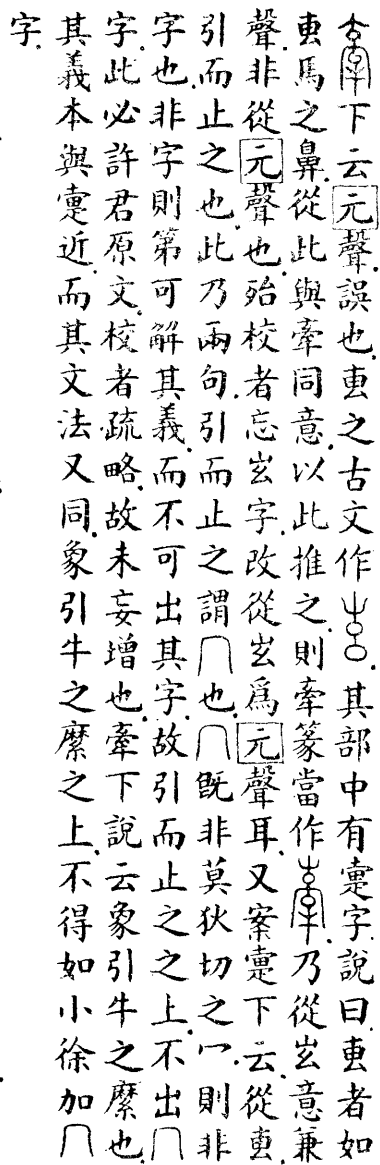 下云元聲誤也叀之古文作其部中有疐字說曰叀者如
叀馬之鼻從此與牽同意以此推之則牽篆當作乃從玄意兼
聲非從元聲也殆校者忘玄字改從玄爲元聲耳又案疐下云從叀
引而止之也此乃兩句引而止之謂冂也冂既非莫狄切之冖則非
字也非字則第可解其義而不可出其字故引而止之之上不出冂
字此必許君原文校者疏略故未妄增也牽下說云象引牛之縻也
其義本與疐近而其文法又同象引牛之縻之上不得如小徐加冂
字